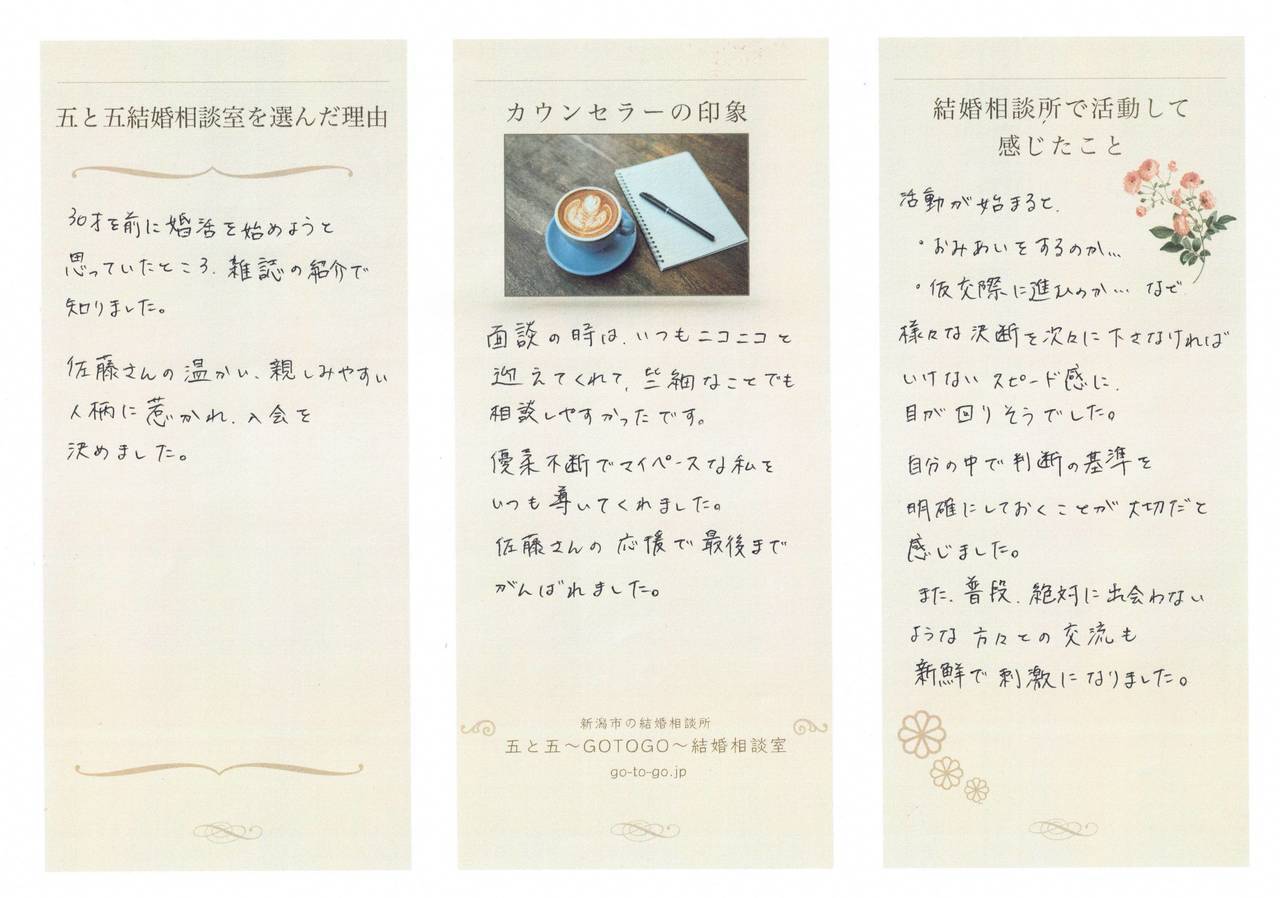 五と五結婚相談室を選んだ理由
30才を前に婚活を始めようと
思っていたところ、雑誌の紹介で
知りました。
佐藤さんの温かい、親しみやすい
人柄に惹かれ、入会を
決めました。
カウンセラーの印象
面談の時は、いつもニコニコと
迎えてくれて、些細なことでも
相談しやすかったです。
優柔不断でマイペースな私を
いつも導いてくれました。
佐藤さんの応援で最後まで
がんばれました。
新潟市の結婚相談所
五と五～GOTOGO～結婚相談室
go-to-go.jp
結婚相談所で活動して
感じたこと
活動が始まると、
・おみあいをするのか…
・仮交際に進むのか… など
様々な決断を次々に下さなければ
いけないスピード感に、
目が回りそうでした。
自分の中で判断の基準を
明確にしておくことが大切だと
感じました。
また、普段、絶対に出会わない
ような方々との交流も
新鮮で刺激になりました。